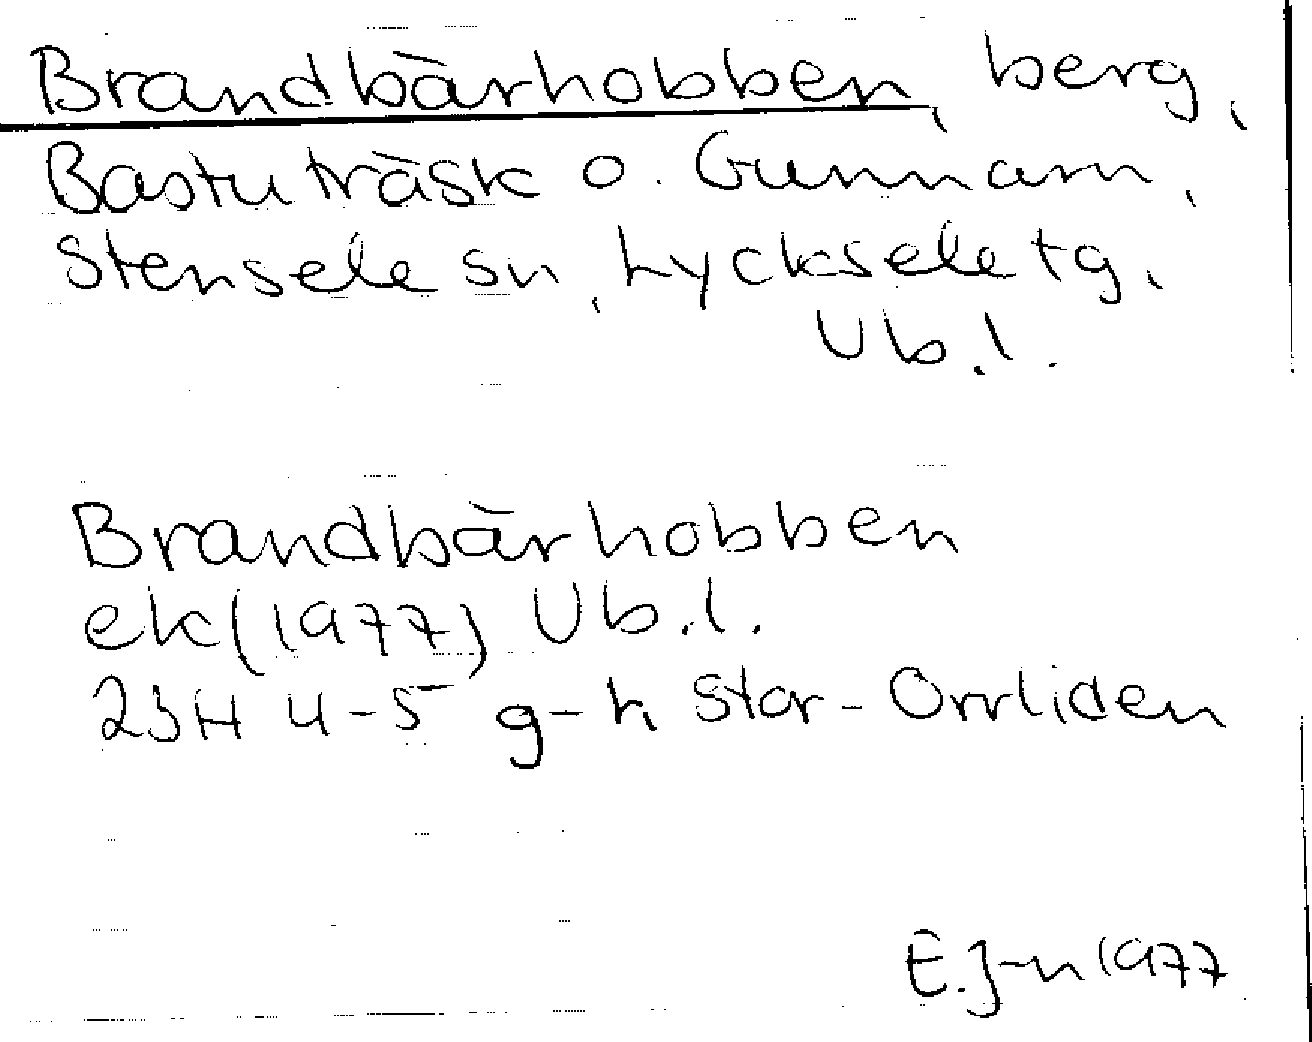 Brandbärhobben, berg,
Bastuträsk o. Gunnarn,
Stensele sn, Lycksele tg,
Vb.l.
Brandbärhobben
ek(1977) Vb.l.
23H 4-5 g-h Stor-Orrliden
E.J-n 1977